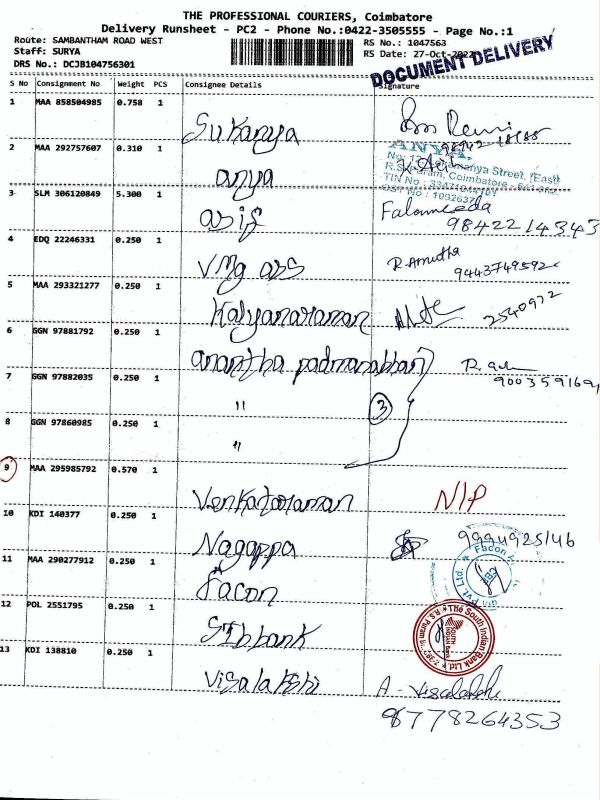 THE PROFESSIONAL COURIERS, Coimbatore
Delivery Runsheet - PC2 - Phone No.:0422-3505555 - Page No.:1
Route: SAMBANTHAM ROAD WEST RS No.: 1047563
Staff: SURYA RS Date: 27-Oct-2022
DRS No.: DCJB104756301
DOCUMENT DELIVERY
S No Consignment No Weight PCS Consignee Details Signature
1 MAA 858504985 0.758 1 Sukanya
2 MAA 292757607 0.310 1 anya
ANYA.
Street, (East)
R.S. Puram, Coimbatore
TIN No
CST No : 1092637
3 SLM 306120849 5.300 1 asif
9842214343
4 EDQ 22246331 0.250 1 VMG abs R. Amutha
9443749592
5 MAA 293321277 0.250 1 Kalyanaraman 2540972
6 GGN 97881792 0.250 1 anantha padmanabhan
9003591691
7 GGN 97882035 0.250 1 " 3
8 GGN 97860985 0.250 1 "
9 MAA 295985792 0.570 1 Venkataraman N/P
10 KDI 140377 0.250 1 Nagappa 9994925146
11 MAA 290277912 0.250 1 Facon
Facon
Pvt. Ltd.
CBE
12 POL 2551795 0.250 1 SIbbank
The South Indian Bank Ltd.
R.S. Puram
13 KDI 138810 0.250 1 Visalakshi A - Visalakshi
8778264353